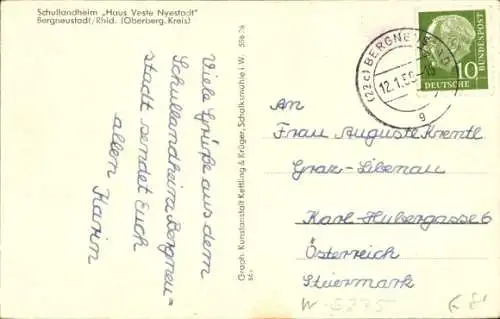 Schullandheim „Haus Veste Nyestadt"
Bergneustadt/Rhld. (Oberberg. Kreis)
Viele Grüße aus dem
Schullandheim Bergneu-
stadt sendet Euch
allen Karin
Graph. Kunstanstalt Kettling & Krüger, Schalksmühle i. W.
(22c) BERGNEUSTADT
12.1.59
g
10
DEUTSCHE
BUNDESPOST
An
Frau Auguste Krentl
Graz-Liebenau
Karl-Hubergasse 6
Österreich
Steiermark
W-5275